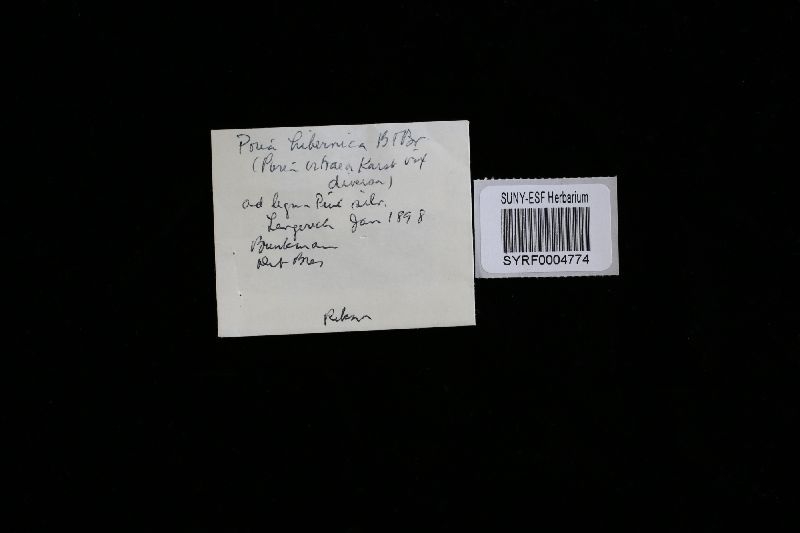 Poria hibernica B & Br
(Poria vitraea Karst vix
diversa)
ad legna Pini silv.
Lengerich Jan 1898
Brinkmann
Det Bres
SUNY-ESF Herbarium
SYRF0004774